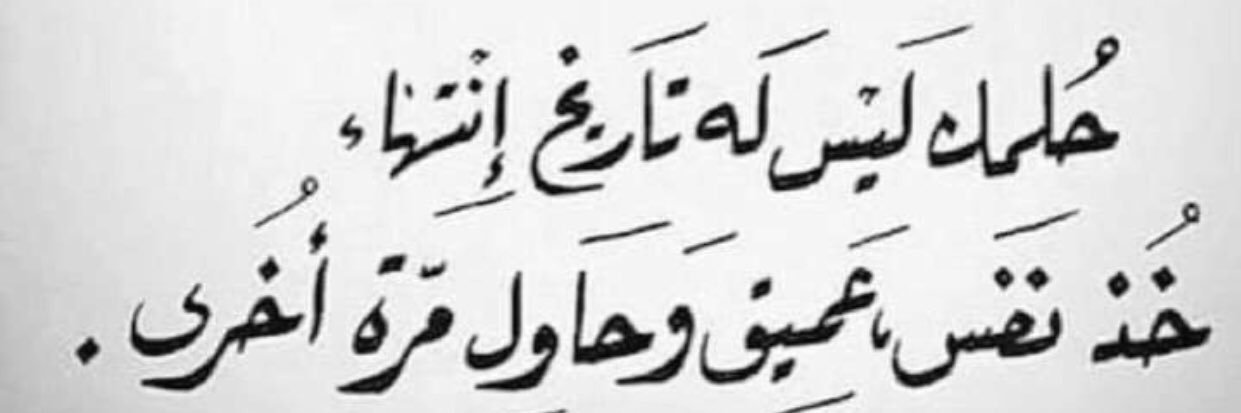 حُلمك لَيْس لَه تَارِيخ إِنْتهاء
خُذ نَفَس، عَميق وَحَاول مَرّة أُخرى .